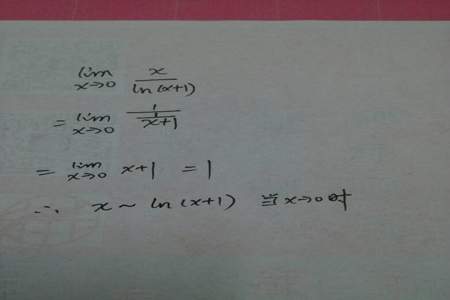 lim x→0 x/ln(x+1)
= lim x→0 1/(1/(x+1))
= lim x→0 x+1 = 1
∴ x ~ ln(x+1) 当x→0时